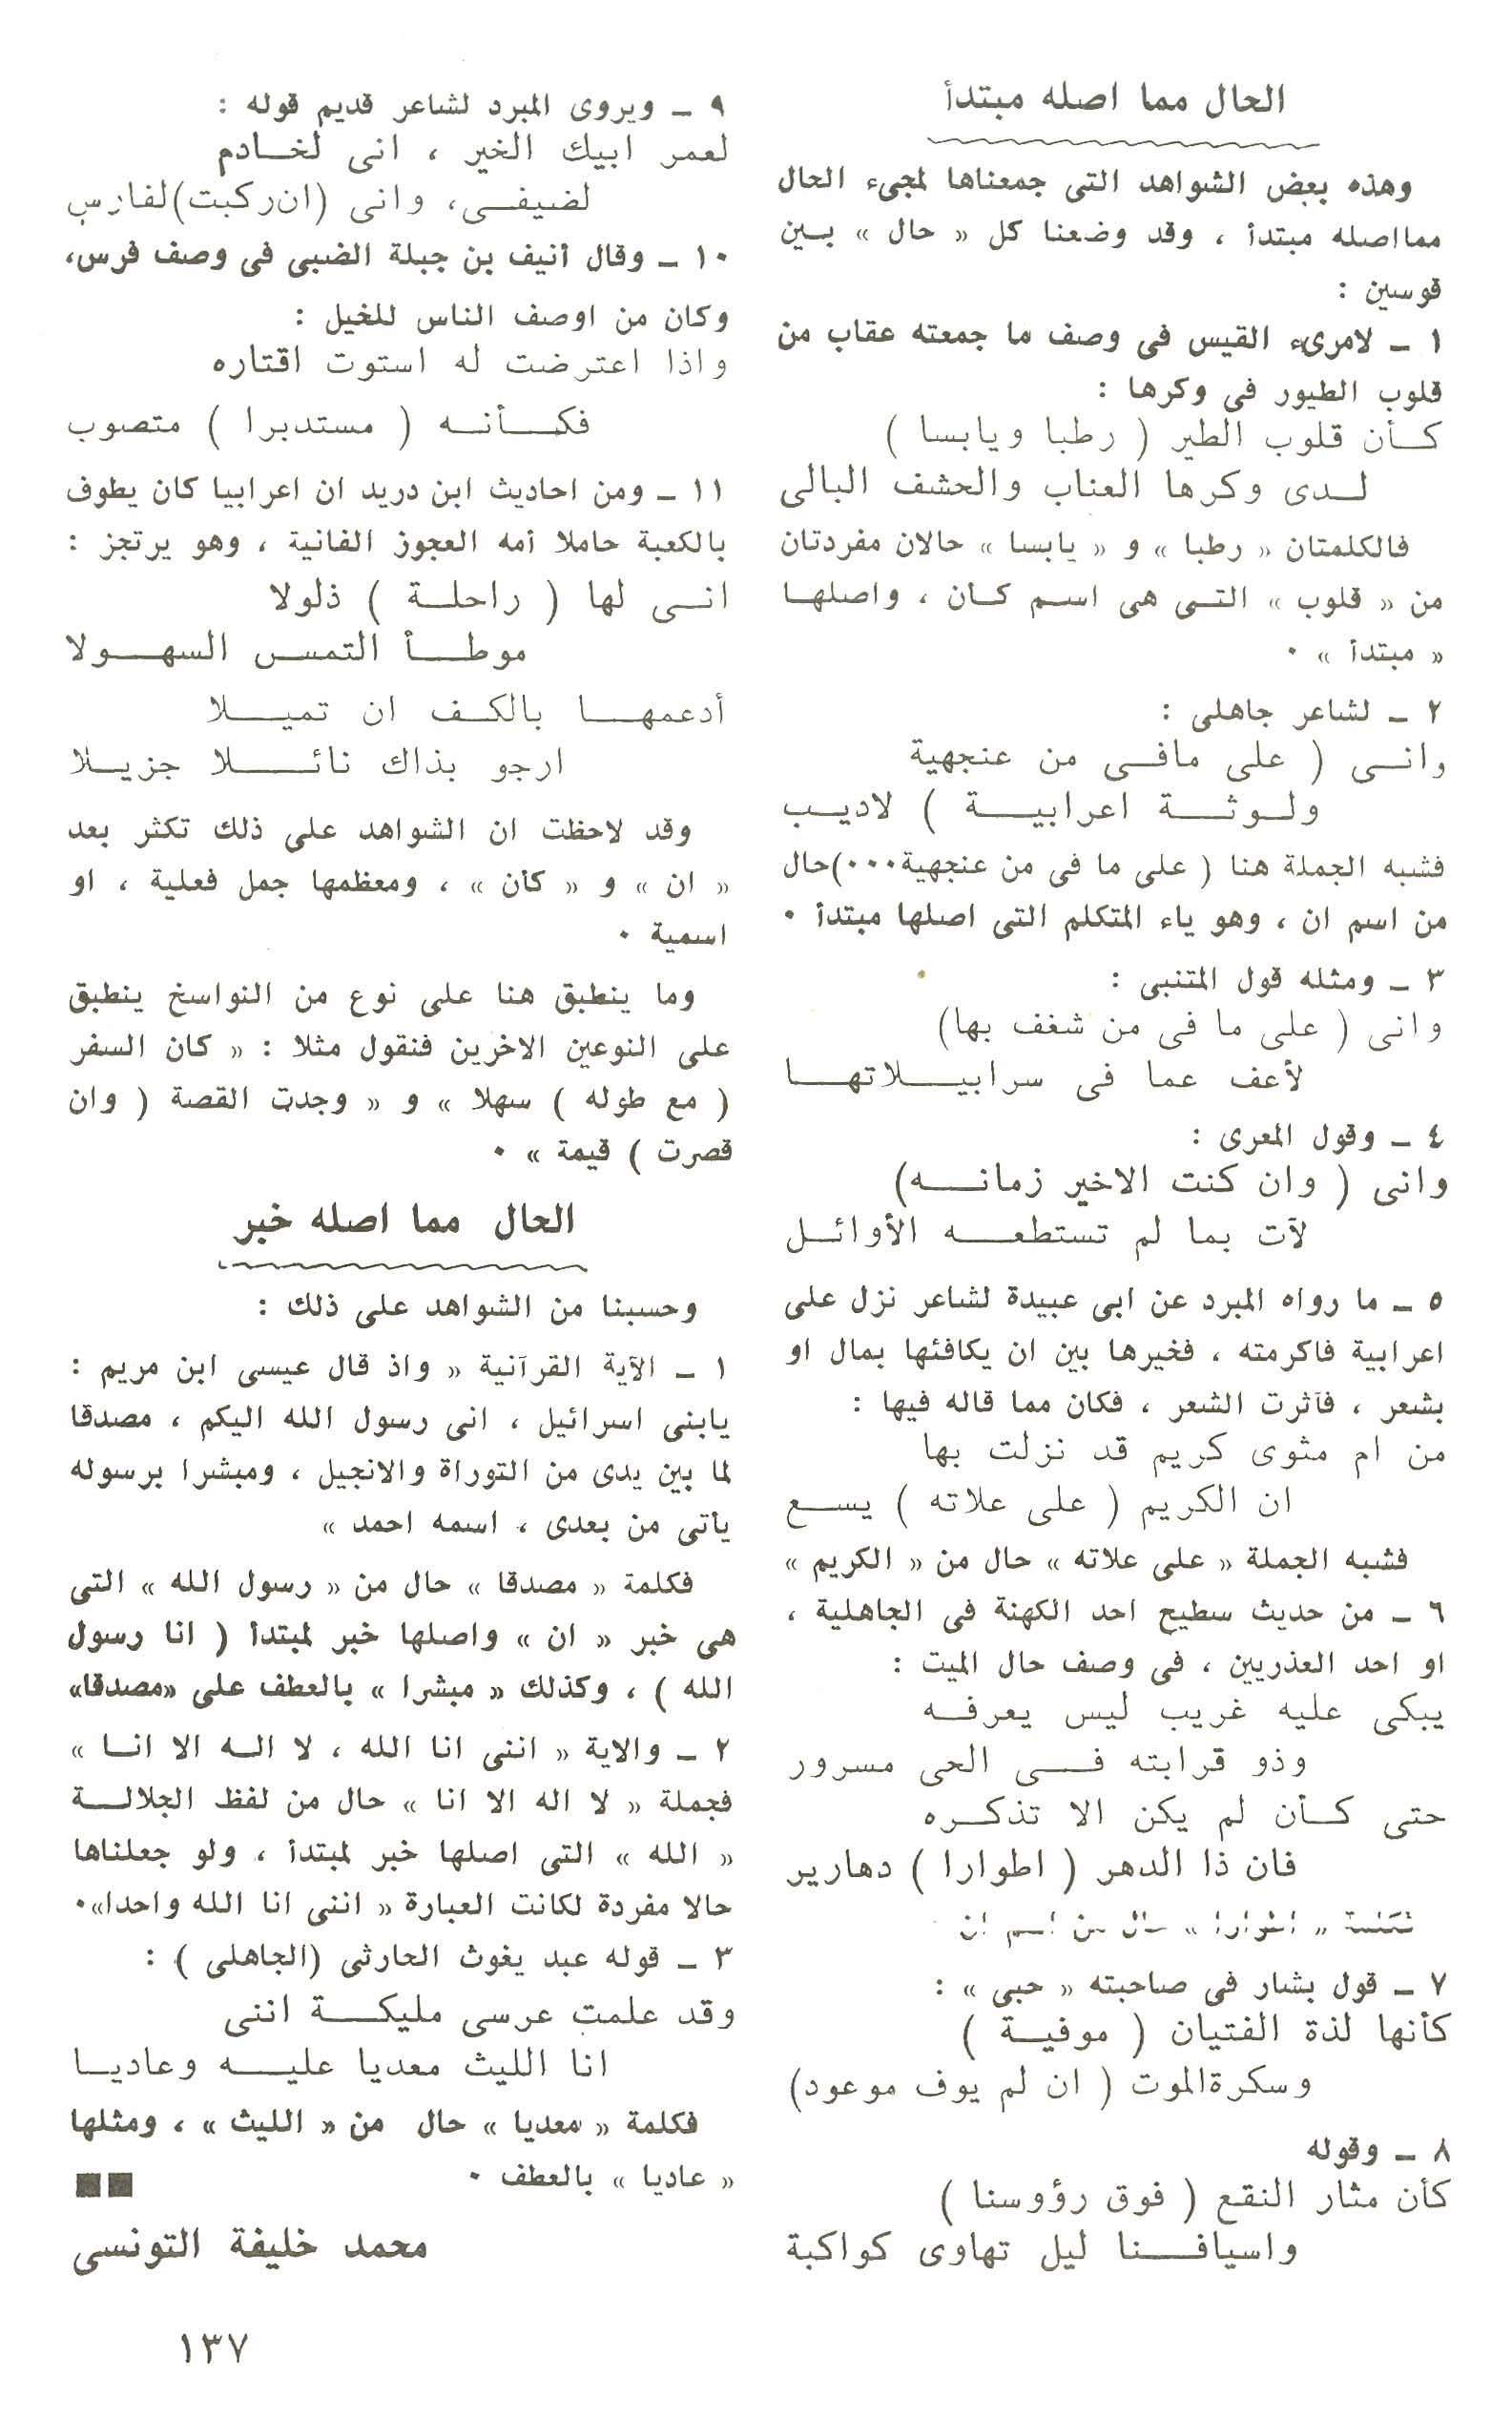 الحال مما اصله مبتدأ
وهذه بعض الشواهد التى جمعناها لمجىء الحال
مما اصله مبتدأ ، وقد وضعنا كل « حال » بـين
قوسين :
١ ـ لامرىء القيس فى وصف ما جمعته عقاب من
قلوب الطيور فى وكرها :
كـأن قلوب الطير ( رطبا ويابسا )
لـدى وكرها العناب والحشف البالى
فالكلمتان « رطبا » و « يابسا » حالان مفردتان
من « قلوب » التـى هى اسـم كـان ، واصلهـا
« مبتدأ » ٠
٢ ـ لشاعر جاهلى :
وانـى ( على مافـى من عنجهية
ولـوثـة اعرابيـة ) لاديـب
فشبه الجملة هنا ( على ما فى من عنجهية٠٠٠)حال
من اسم ان ، وهو ياء المتكلم التى اصلها مبتدأ ٠
٣ ـ ومثله قول المتنبى :
وانى ( على ما فى من شغف بها)
لأعف عما فى سرابيـلاتهـا
٤ ـ وقول المعرى :
وانى ( وان كنت الاخير زمانـه)
لآت بما لم تستطعـه الأوائـل
٥ ـ ما رواه المبرد عن ابى عبيدة لشاعر نزل على
اعرابية فاكرمته ، فخيرها بين ان يكافئها بمال او
بشعر ، فآثرت الشعر ، فكان مما قاله فيها :
من ام مثوى كريم قد نزلت بها
ان الكريم ( على علاته ) يسـع
فشبه الجملة « على علاته » حال من « الكريم »
٦ ـ من حديث سطيح احد الكهنة فى الجاهلية ،
او احد العذريين ، فى وصف حال الميت :
يبكى عليه غريب ليس يعرفـه
وذو قرابته فـى الحى مسرور
حتى كـأن لم يكن الا تذكـره
فان ذا الدهر ( اطوارا ) دهارير
فكلمة « اطوارا » حال من اسم ان
٧ ـ قول بشار فى صاحبته « حبى » :
كأنها لذة الفتيان ( موفيـة )
وسكرةالموت ( ان لم يوف موعود)
٨ ـ وقوله
كأن مثار النقع ( فوق رؤوسنا )
واسيافـنا ليل تهاوى كواكبة
٩ ـ ويروى المبرد لشاعر قديم قوله :
لعمر ابيك الخير ، انى لخـادم
لضيفـى، وانى (ان ركبت)لفارس
١٠ ـ وقال أنيف بن جبلة الضبى فى وصف فرس،
وكان من اوصف الناس للخيل :
واذا اعترضت له استوت اقتاره
فكـأنـه ( مستدبرا ) متصوب
١١ ـ ومن احاديث ابن دريد ان اعرابيا كان يطوف
بالكعبة حاملا أمه العجوز الفانية ، وهو يرتجز :
انـى لها ( راحلـة ) ذلولا
موطـأ التمس السهـولا
أدعمهـا بالكـف ان تميـلا
ارجو بذاك نائـلا جزيـلا
وقد لاحظت ان الشواهد على ذلك تكثر بعد
« ان » و « كأن » ، ومعظمها جمل فعلية ، او
اسمية ٠
وما ينطبق هنا على نوع من النواسخ ينطبق
على النوعين الاخرين فنقول مثلا : « كان السفر
( مع طوله ) سهلا » و « وجدت القصة ( وان
قصرت ) قيمة » ٠
الحال مما اصله خبر
وحسبنا من الشواهد على ذلك :
١ ـ الآية القرآنية « واذ قال عيسى ابن مريم :
يابنى اسرائيل ، انى رسول الله اليكم ، مصدقا
لما بين يدى من التوراة والانجيل ، ومبشرا برسوله
يأتى من بعدى ، اسمه احمد »
فكلمة « مصدقا » حال من « رسول الله » التى
هى خبر « ان » واصلها خبر لمبتدأ ( انا رسول
الله ) ، وكذلك « مبشرا » بالعطف على «مصدقا»
٢ ـ والاية « اننى انا الله ، لا الـه الا انـا »
فجملة « لا اله الا انا » حال من لفظ الجلالـة
« الله » التى اصلها خبر لمبتدأ ، ولو جعلناها
حالا مفردة لكانت العبارة « اننى انا الله واحدا»٠
٣ ـ قوله عبد يغوث الحارثى (الجاهلى ) :
وقد علمت عرسى مليكـة اننى
انا الليث معديا عليـه وعاديـا
فكلمة « معديا » حال من « الليث » ، ومثلها
« عاديا » بالعطف ٠
محمد خليفة التونسى
١٣٧